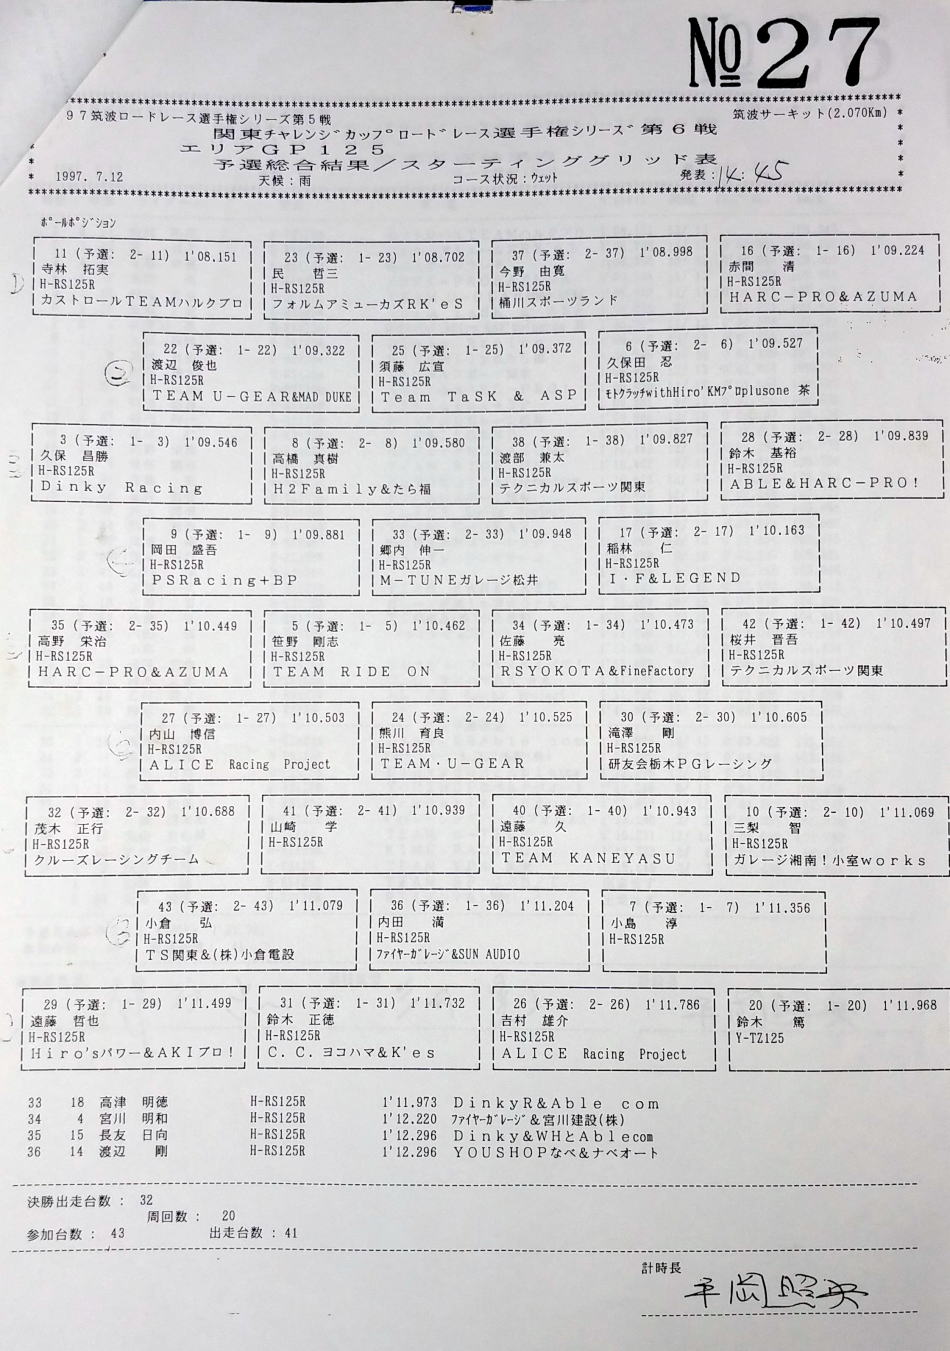 №27
************************************************************
97筑波ロードレース選手権シリーズ第5戦 筑波サーキット(2.070Km)
関東チャレンジカップロードレース選手権シリーズ第6戦
エリアGP125
予選総合結果/スターティンググリッド表
1997. 7.12 天候:雨 コース状況:ウェット 発表:14:45
************************************************************
ポールポジション
11 (予選: 2- 11) 1'08.151 23 (予選: 1- 23) 1'08.702 37 (予選: 2- 37) 1'08.998 16 (予選: 1- 16) 1'09.224
寺林 拓実 民 哲三 今野 由寛 赤間 清
H-RS125R H-RS125R H-RS125R H-RS125R
カストロールTEAMハルクプロ フォルムアミューカズRK'eS 桶川スポーツランド HARC-PRO&AZUMA
22 (予選: 1- 22) 1'09.322 25 (予選: 1- 25) 1'09.372 6 (予選: 2- 6) 1'09.527
渡辺 俊也 須藤 広宣 久保田 忍
H-RS125R H-RS125R H-RS125R
TEAM U-GEAR&MAD DUKE Team TaSK & ASP モトクラッチwithHiro'KMプロplusone 茶
3 (予選: 1- 3) 1'09.546 8 (予選: 2- 8) 1'09.580 38 (予選: 1- 38) 1'09.827 28 (予選: 2- 28) 1'09.839
久保 昌勝 高橋 真樹 渡部 兼太 鈴木 基裕
H-RS125R H-RS125R H-RS125R H-RS125R
Dinky Racing H2Family&たら福 テクニカルスポーツ関東 ABLE&HARC-PRO!
9 (予選: 1- 9) 1'09.881 33 (予選: 2- 33) 1'09.948 17 (予選: 2- 17) 1'10.163
岡田 盛吾 郷内 伸一 稲林 仁
H-RS125R H-RS125R H-RS125R
PSRacing+BP M-TUNEガレージ松井 I・F&LEGEND
35 (予選: 2- 35) 1'10.449 5 (予選: 1- 5) 1'10.462 34 (予選: 1- 34) 1'10.473 42 (予選: 1- 42) 1'10.497
高野 栄治 笹野 剛志 佐藤 亮 桜井 晋吾
H-RS125R H-RS125R H-RS125R H-RS125R
HARC-PRO&AZUMA TEAM RIDE ON RSYOKOTA&FineFactory テクニカルスポーツ関東
27 (予選: 1- 27) 1'10.503 24 (予選: 2- 24) 1'10.525 30 (予選: 2- 30) 1'10.605
内山 博信 熊川 育良 滝澤 剛
H-RS125R H-RS125R H-RS125R
ALICE Racing Project TEAM・U-GEAR 研友会栃木PGレーシング
32 (予選: 2- 32) 1'10.688 41 (予選: 2- 41) 1'10.939 40 (予選: 1- 40) 1'10.943 10 (予選: 2- 10) 1'11.069
茂木 正行 山崎 学 遠藤 久 三梨 智
H-RS125R H-RS125R H-RS125R H-RS125R
クルーズレーシングチーム TEAM KANEYASU ガレージ湘南!小室works
43 (予選: 2- 43) 1'11.079 36 (予選: 1- 36) 1'11.204 7 (予選: 1- 7) 1'11.356
小倉 弘 内田 満 小島 淳
H-RS125R H-RS125R H-RS125R
TS関東&(株)小倉電設 ファイヤーガレージ&SUN AUDIO
29 (予選: 1- 29) 1'11.499 31 (予選: 1- 31) 1'11.732 26 (予選: 2- 26) 1'11.786 20 (予選: 1- 20) 1'11.968
遠藤 哲也 鈴木 正徳 吉村 雄介 鈴木 篤
H-RS125R H-RS125R H-RS125R Y-TZ125
Hiro'sパワー&AKIプロ! C.C.ヨコハマ&K'es ALICE Racing Project
33 18 高津 明徳 H-RS125R 1'11.973 DinkyR&Able com
34 4 宮川 明和 H-RS125R 1'12.220 ファイヤーガレージ&宮川建設(株)
35 15 長友 日向 H-RS125R 1'12.296 Dinky&WHとAblecom
36 14 渡辺 剛 H-RS125R 1'12.296 YOUSHOPなべ&ナベオート
決勝出走台数: 32
周回数: 20
参加台数: 43 出走台数: 41
計時長
平岡照央